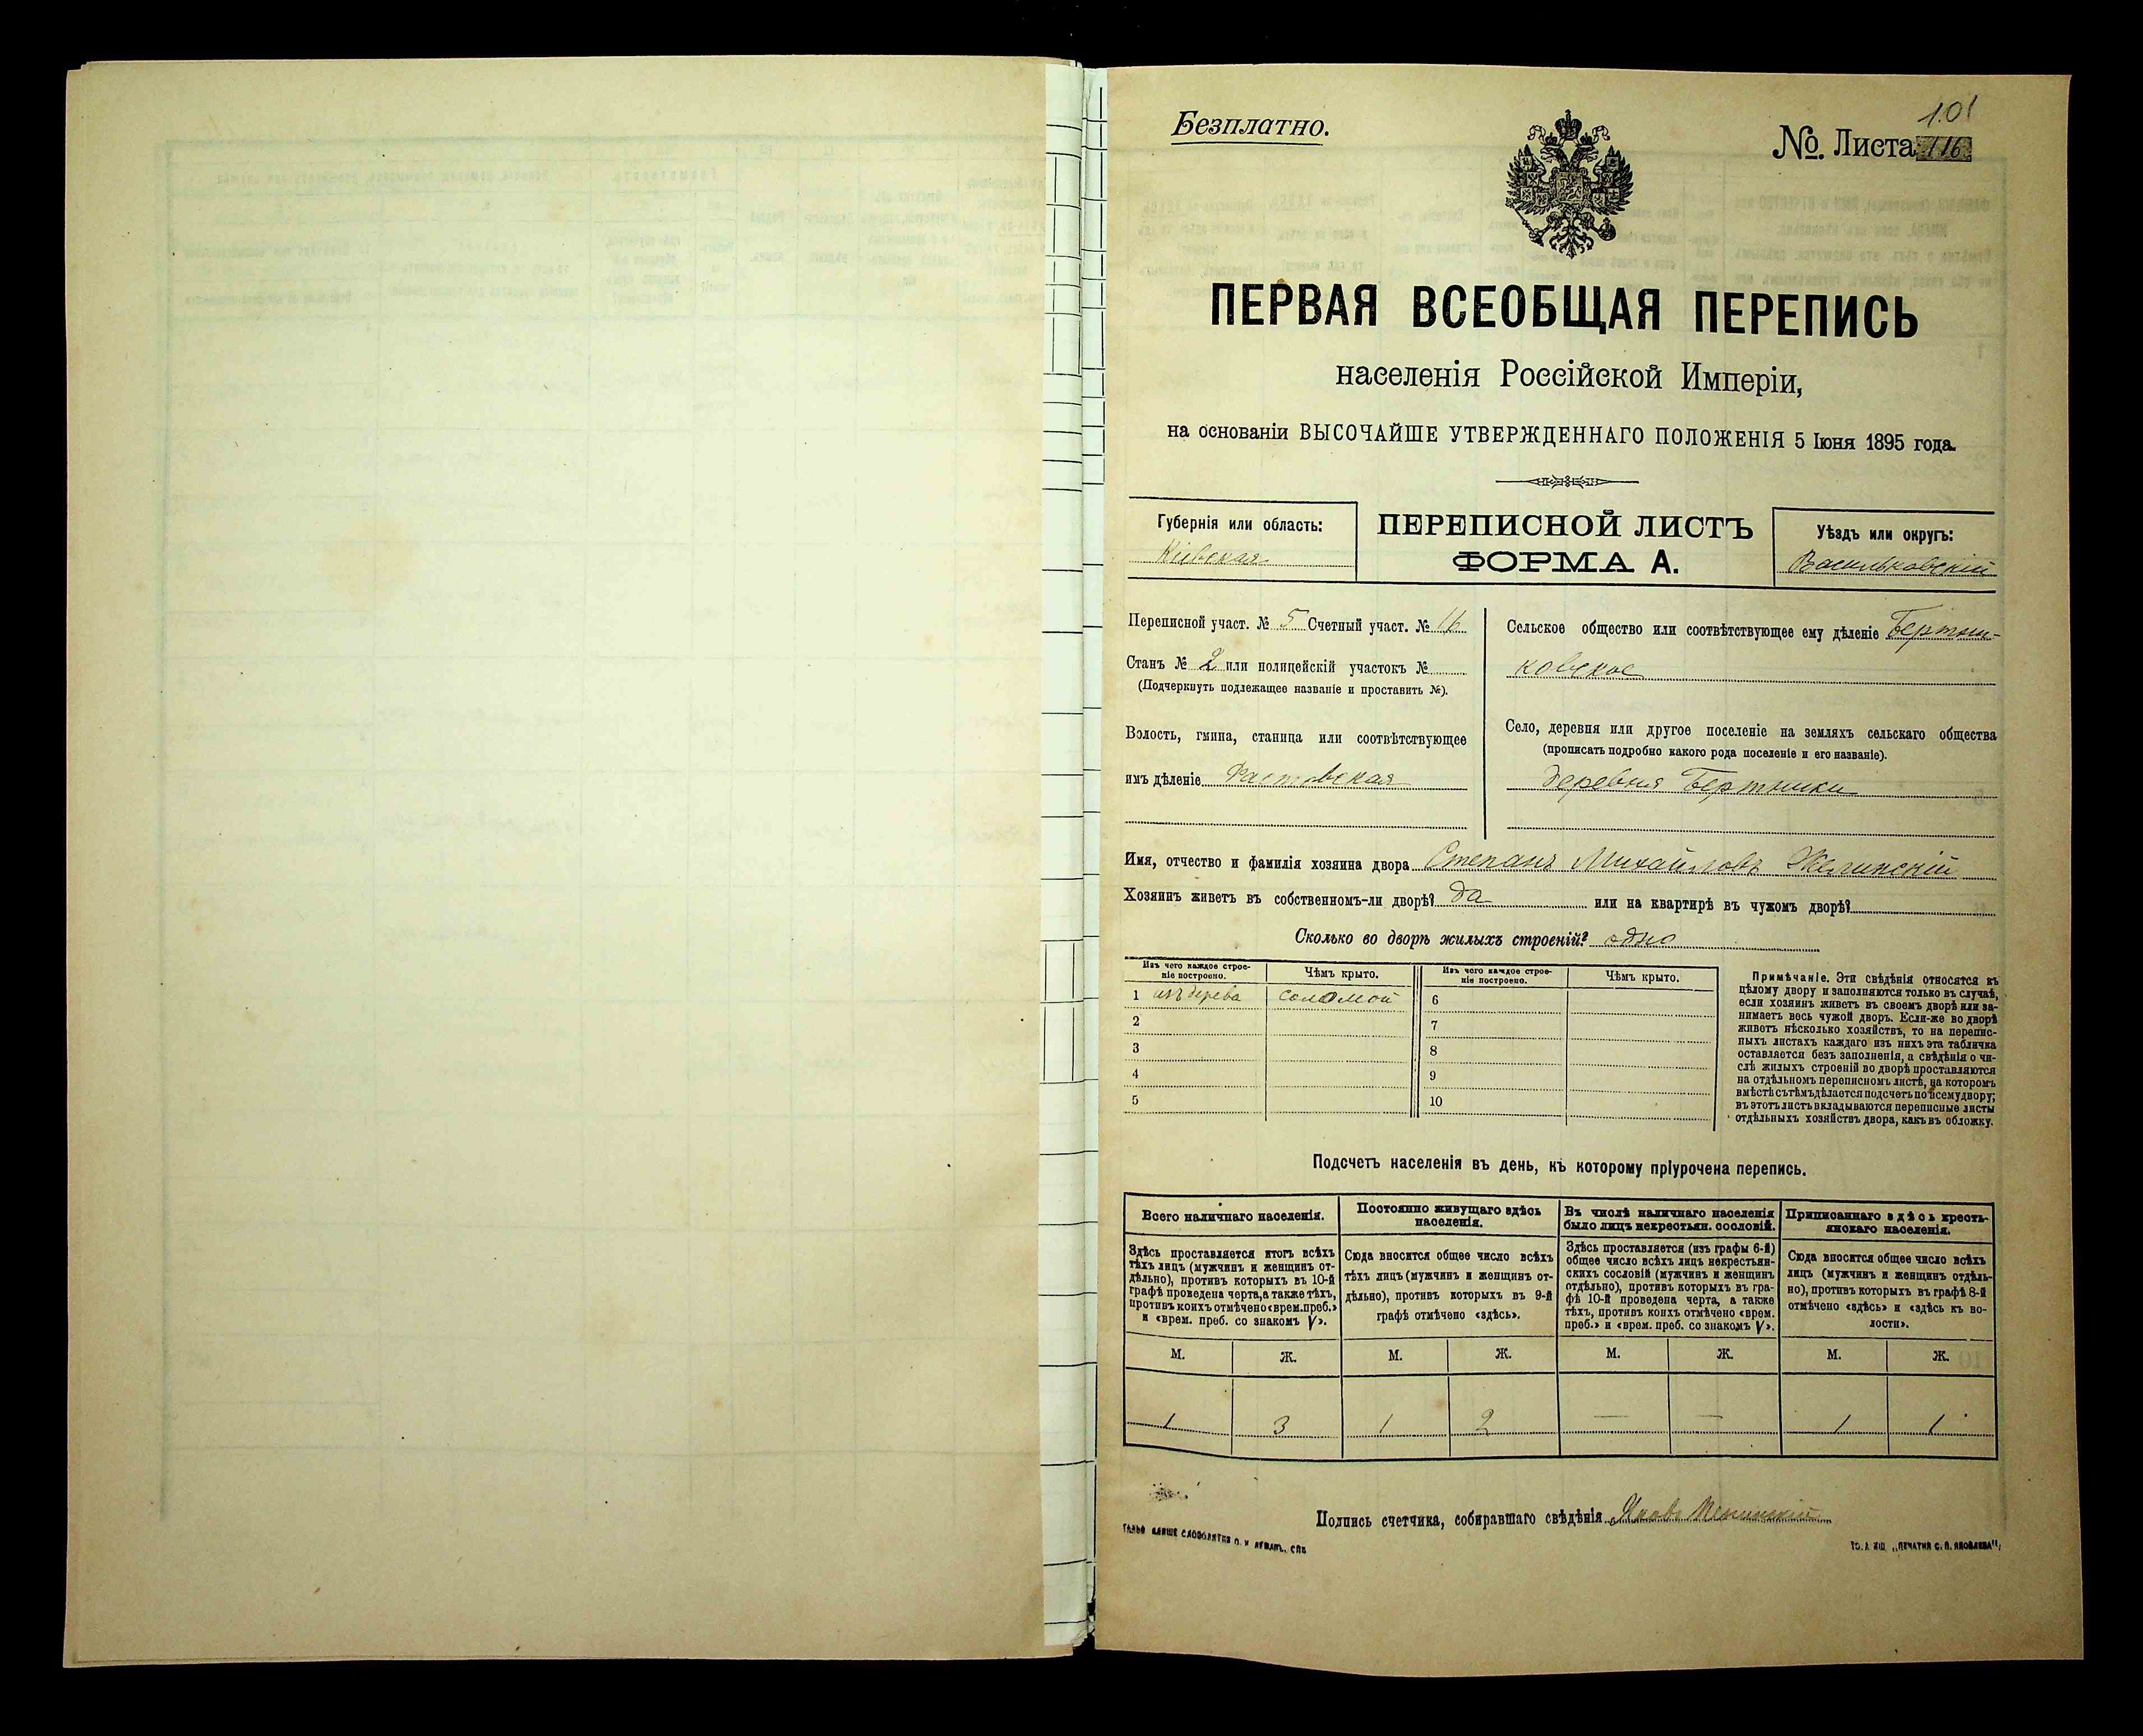 Безплатно.
101
№. Листа 116
ПЕРВАЯ ВСЕОБЩАЯ ПЕРЕПИСЬ
населенія Россійской Имперіи,
на основаніи ВЫСОЧАЙШЕ УТВЕРЖДЕННАГО ПОЛОЖЕНІЯ 5 Іюня 1895 года.
Губернія или область:
Кіевская
ПЕРЕПИСНОЙ ЛИСТЪ
ФОРМА А.
Уѣздъ или округъ:
Васильковскій
Переписной участ. № 5 Счетный участ. № 16
Станъ № 2 или полицейскій участокъ №
(Подчеркнуть подлежащее названіе и проставить №).
Волость, гмина, станица или соотвѣтствующее
имъ дѣленіе Фастовская
Сельское общество или соотвѣтствующее ему дѣленіе Бертни-
ковское
Село, деревня или другое поселеніе на земляхъ сельскаго общества
(прописать подробно какого рода поселеніе и его названіе).
деревня Бертники
Имя, отчество и фамилія хозяина двора Степанъ Михайловъ
Хозяинъ живетъ въ собственномъ-ли дворѣ? да или на квартирѣ въ чужомъ дворѣ?
Сколько во дворѣ жилыхъ строеній? одно
Изъ чего каждое строе-
ніе построено.
Чѣмъ крыто.
Изъ чего каждое строе-
ніе построено.
Чѣмъ крыто.
1 изъ дерева соломой 6
2 7
3 8
4 9
5 10
Примѣчаніе. Эти свѣдѣнія относятся къ
цѣлому двору и заполняются только въ случаѣ,
если хозяинъ живетъ въ своемъ дворѣ или за-
нимаетъ весь чужой дворъ. Если-же во дворѣ
живетъ нѣсколько хозяйствъ, то на перепис-
ныхъ листахъ каждаго изъ нихъ эта табличка
оставляется безъ заполненія, а свѣдѣнія о чи-
слѣ жилыхъ строеній во дворѣ проставляются
на отдѣльномъ переписномъ листѣ, на которомъ
вмѣстѣ съ тѣмъ дѣлается подсчетъ по всему двору;
въ этотъ листъ вкладываются переписные листы
отдѣльныхъ хозяйствъ двора, какъ въ обложку.
Подсчетъ населенія въ день, къ которому пріурочена перепись.
Всего наличнаго населенія.
Здѣсь проставляется итогъ всѣхъ
тѣхъ лицъ (мужчинъ и женщинъ от-
дѣльно), противъ которыхъ въ 10-й
графѣ проведена черта, а также тѣхъ,
противъ коихъ отмѣчено «врем. преб.»
и «врем. преб. со знакомъ V».
Постоянно живущаго здѣсь
населенія.
Сюда вносится общее число всѣхъ
тѣхъ лицъ (мужчинъ и женщинъ от-
дѣльно), противъ которыхъ въ 9-й
графѣ отмѣчено «здѣсь».
Въ числѣ наличнаго населенія
было лицъ некрестьян. сословій.
Здѣсь проставляется (изъ графы 6-й)
общее число всѣхъ лицъ некрестьян-
скихъ сословій (мужчинъ и женщинъ
отдѣльно), противъ которыхъ въ гра-
фѣ 10-й проведена черта, а также
тѣхъ, противъ коихъ отмѣчено «врем.
преб.» и «врем. преб. со знакомъ V».
Приписаннаго здѣсь кресть-
янскаго населенія.
Сюда вносится общее число всѣхъ
лицъ (мужчинъ и женщинъ отдѣль-
но), противъ которыхъ въ графѣ 8-й
отмѣчено «здѣсь» и «здѣсь къ во-
лости».
М. Ж. М. Ж. М. Ж. М. Ж.
1 3 1 2 — — 1 1
Подпись счетчика, собиравшаго свѣдѣнія